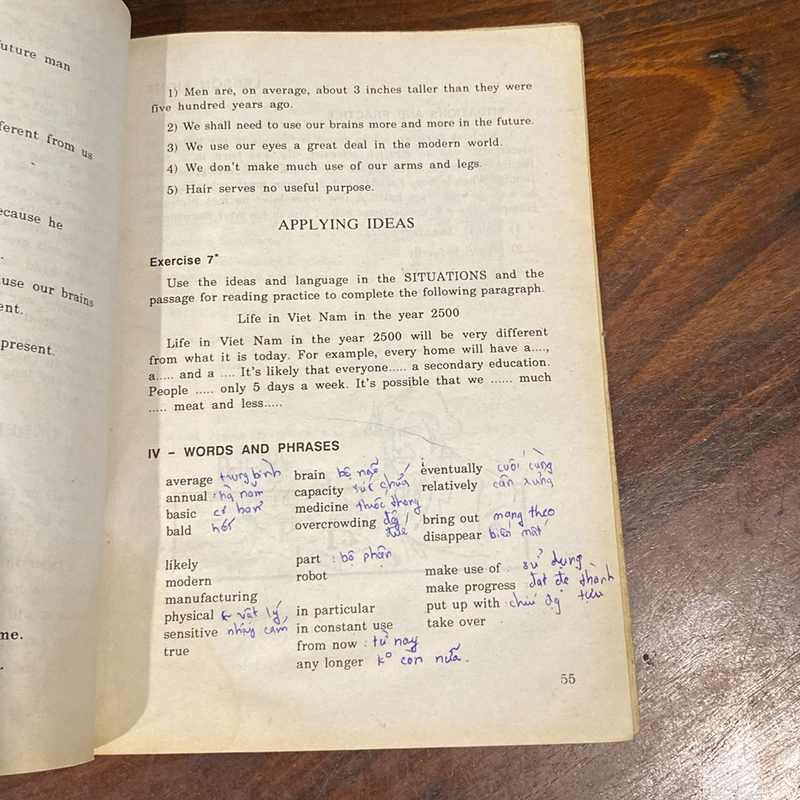 future man
ferent from us
ecause he
use our brains
ent.
present.
me.
1) Men are, on average, about 3 inches taller than they were
five hundred years ago.
2) We shall need to use our brains more and more in the future.
3) We use our eyes a great deal in the modern world.
4) We don't make much use of our arms and legs.
5) Hair serves no useful purpose.
APPLYING IDEAS
Exercise 7*
Use the ideas and language in the SITUATIONS and the
passage for reading practice to complete the following paragraph.
Life in Viet Nam in the year 2500
Life in Viet Nam in the year 2500 will be very different
from what it is today. For example, every home will have a....,
a..... and a .... It's likely that everyone..... a secondary education.
People ..... only 5 days a week. It's possible that we ...... much
..... meat and less.....
IV - WORDS AND PHRASES
average trung bình
annual hà năm
basic cơ bản
bald hói
likely
modern
manufacturing
physical vật lý
sensitive nhạy cảm
true
brain bộ não
capacity sức chứa
medicine thuốc thang
overcrowding
part : bộ phận
robot
in particular
in constant use
from now : từ nay
any longer ko còn nữa.
eventually cuối cùng
relatively cân xứng
bring out mang theo
disappear biến mất
make use of sử dụng
make progress đạt đc thành
tựu
put up with chịu đự
take over
55